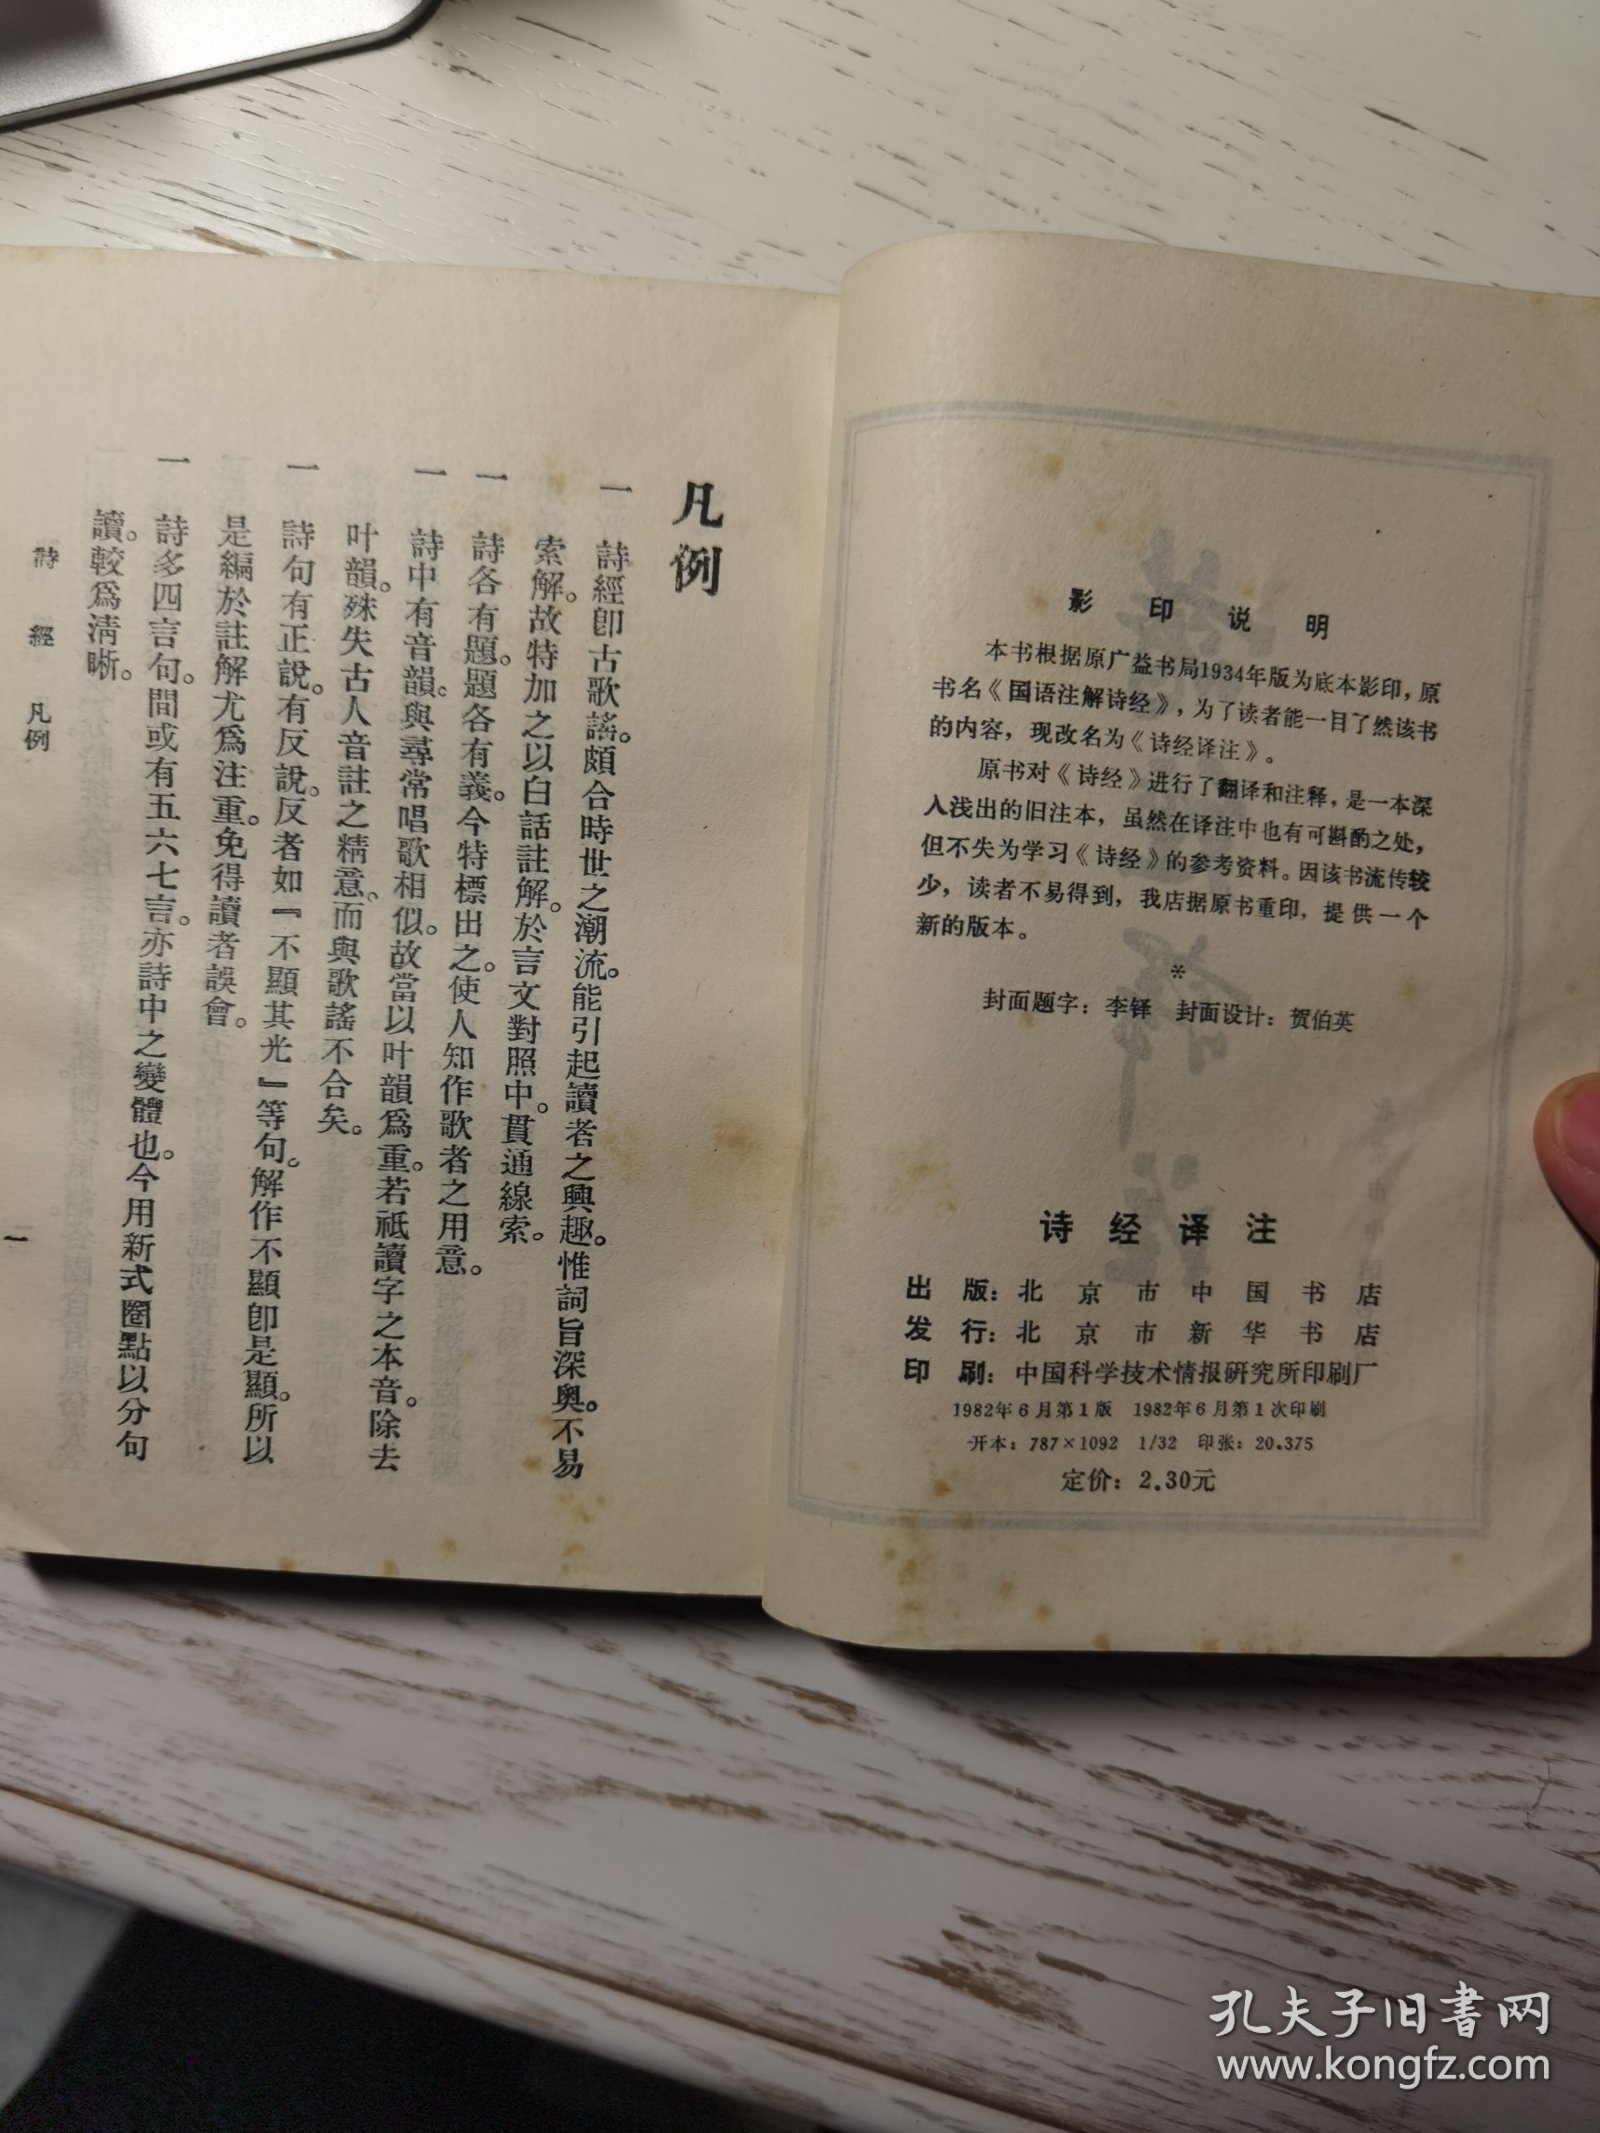 影印说明
本书根据原广益书局1934年版为底本影印，原
书名《国语注解诗经》，为了读者能一目了然该书
的内容，现改名为《诗经译注》。
原书对《诗经》进行了翻译和注释，是一本深
入浅出的旧注本，虽然在译注中也有可斟酌之处，
但不失为学习《诗经》的参考资料。因该书流传较
少，读者不易得到，我店据原书重印，提供一个
新的版本。
*
封面题字：李铎 封面设计：贺伯英
诗经译注
出版：北京市中国书店
发行：北京市新华书店
印刷：中国科学技术情报研究所印刷厂
1982年6月第1版 1982年6月第1次印刷
开本：787×1092 1/32 印张：20.375
定价：2.30元
凡例
一 詩經卽古歌謠。頗合時世之潮流。能引起讀者之興趣。惟詞旨深奧。不易
索解。故特加之以白話註解。於言文對照中。貫通線索。
一 詩各有題。題各有義。今特標出之。使人知作歌者之用意。
一 詩中有音韻。與尋常唱歌相似。故當以叶韻爲重。若祇讀字之本音。除去
叶韻。殊失古人音註之精意。而與歌謠不合矣。
一 詩句有正說。有反說。反者如『不顯其光』等句。解作不顯卽是顯。所以
是編於註解尤爲注重。免得讀者誤會。
一 詩多四言句。間或有五六七言。亦詩中之變體也。今用新式圈點以分句
讀。較爲淸晰。
詩經 凡例
一
孔夫子旧書网
www.kongfz.com